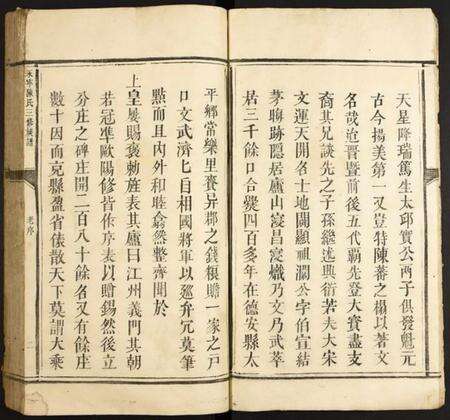 天星降瑞篤生太邱實公兩子俱發魁元
古今揚美第一又豈特陳蕃之榻以著文
名哉迨晋暨前後五代覇先登大寳盡支
裔其兄談先之子孫繼述興衍若夫大宋
文運天開名士地闢顯祖灛公字伯宣結
茅聊跡隱居廬山寖昌寖熾乃文乃武萃
居三千餘口合爨四百多年在德安縣太
平鄉常樂里賽異郡之錢糧贍一家之戸
口文武濟七自相國將軍以廵弁冗莫筆
㸃而且內外和睦翕然整齊聞於
上皇屢賜褒勅旌表其廬曰江州義門其朝
若冠準歐陽修皆作序表以贈錫然後立
分庄之碑庄開二百八十餘名又有餘庄
數十因而克縣盈省俵散天下莫謂大乘
陳氏三修族譜
老序
二